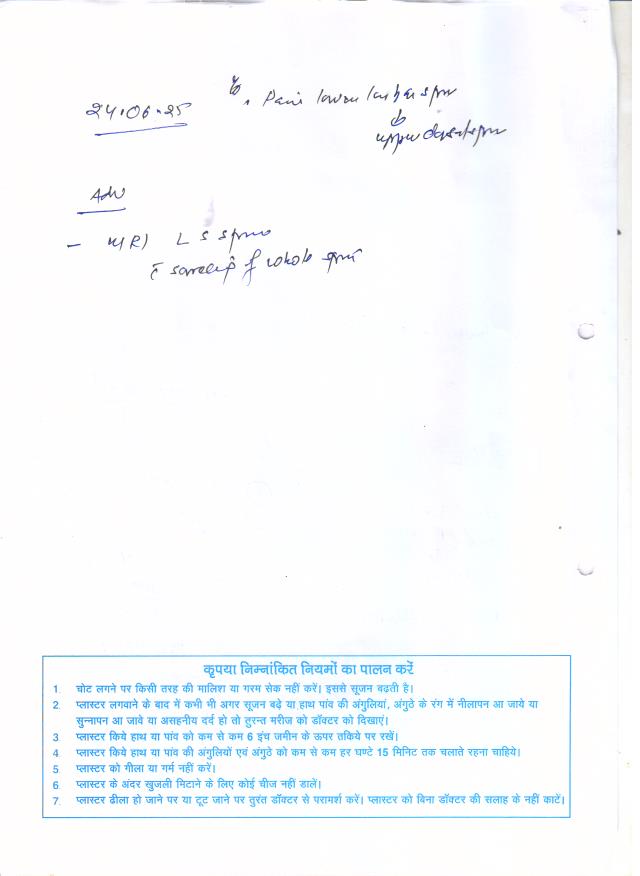 24.06.25
Pain lower lumbar spine
upper dorsal spine
Adv
- MRI L S spine
c̄ screening of whole spine
कृपया निम्नांकित नियमों का पालन करें
1. चोट लगने पर किसी तरह की मालिश या गरम सेक नहीं करें। इससे सूजन बढती है।
2. प्लास्टर लगवाने के बाद में कभी भी अगर सूजन बढ़े या हाथ पांव की अंगुलियां, अंगुठे के रंग में नीलापन आ जाये या
सुन्नापन आ जावे या असहनीय दर्द हो तो तुरन्त मरीज को डॉक्टर को दिखाएं।
3. प्लास्टर किये हाथ या पांव को कम से कम 6 इंच जमीन के ऊपर तकिये पर रखें।
4. प्लास्टर किये हाथ या पांव की अंगुलियों एवं अंगुठे को कम से कम हर घण्टे 15 मिनिट तक चलाते रहना चाहिये।
5. प्लास्टर को गीला या गर्म नहीं करें।
6. प्लास्टर के अंदर खुजली मिटाने के लिए कोई चीज नहीं डालें।
7. प्लास्टर ढीला हो जाने पर या टूट जाने पर तुरंत डॉक्टर से परामर्श करें। प्लास्टर को बिना डॉक्टर की सलाह के नहीं काटें।